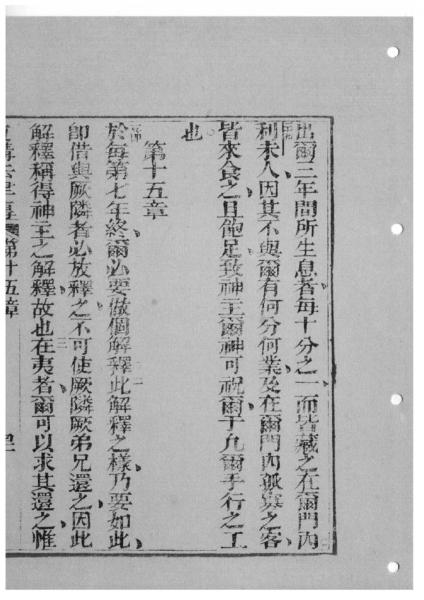 出爾三年間所生息者每十分之一而皆藏之在爾門內
利未人因其不與爾有何分何業及在爾門內孤寡之客
皆來食之且飽足致神主爾神可祝爾于凡爾手行之工
也
第十五章
於每第七年終爾必要做個解釋此解釋之樣乃要如此
卽借與厥隣者必放釋之不可使厥隣厥弟兄還之因此
解釋稱得神主之解釋故也在夷者爾可以求其還之惟
第十五章